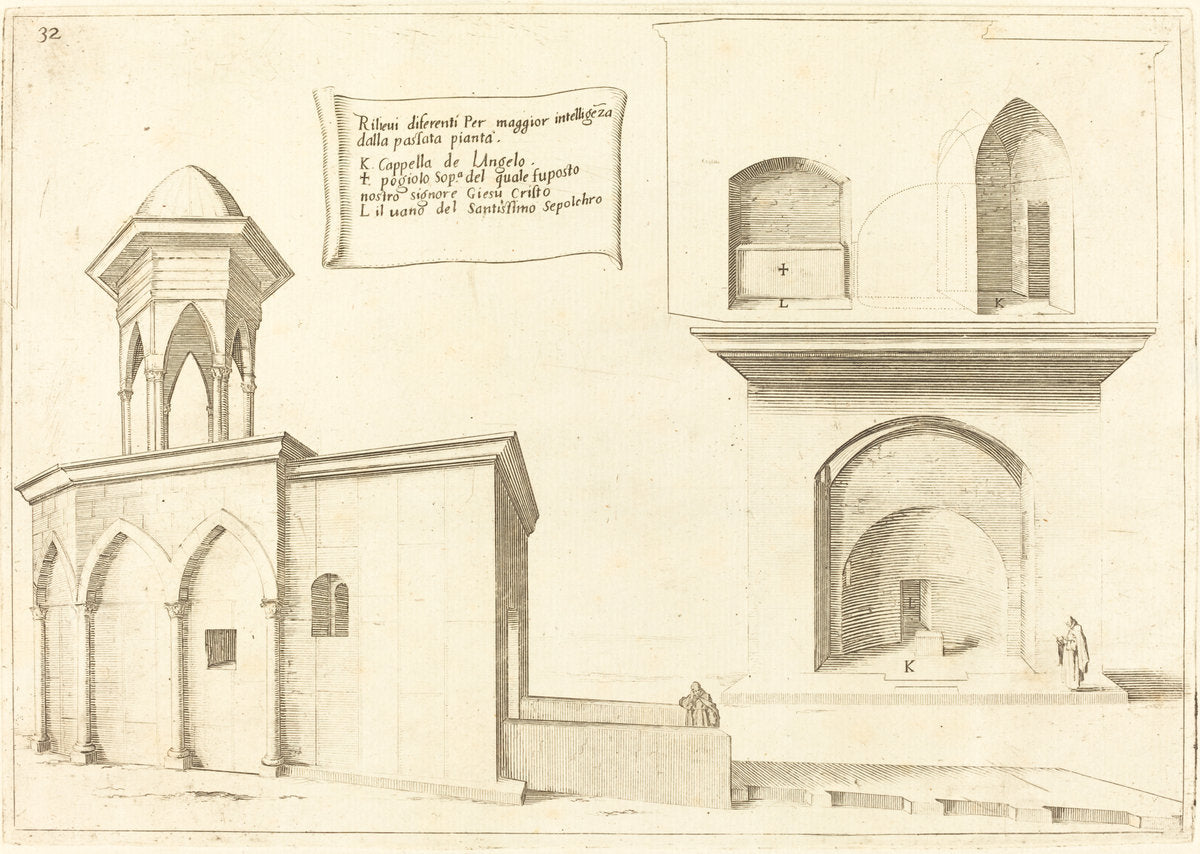 32
Rilieui diferenti Per maggior intelligẽza
dalla passata pianta.
K. Cappella de lAngelo.
✝. pogiolo Sop.ª del quale fu posto
nostro signore Giesu Cristo
L il uano del Santissimo Sepolchro
✝
L
K
L
K